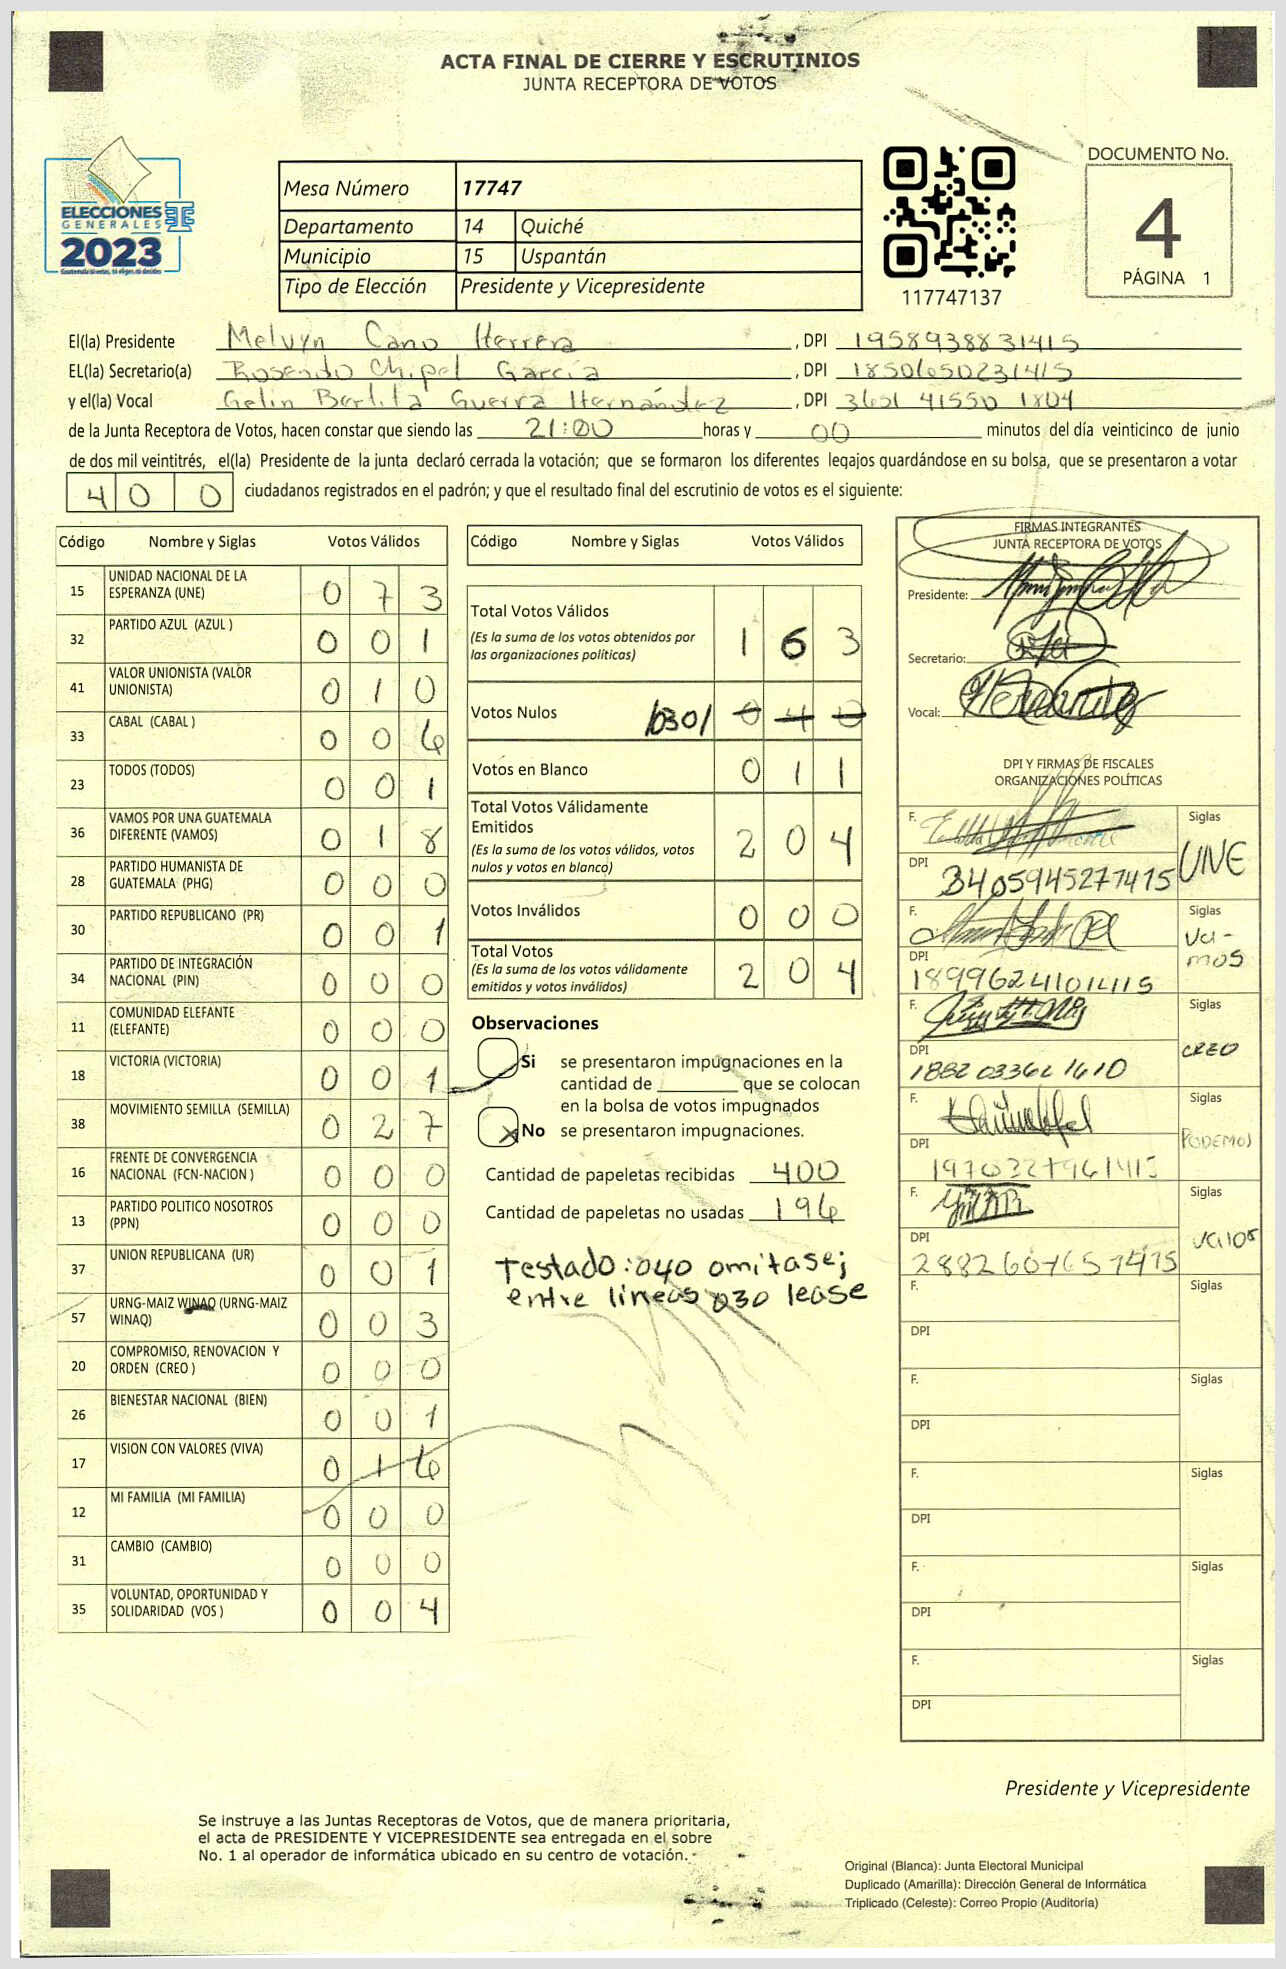 ACTA FINAL DE CIERRE Y ESCRUTINIOS
JUNTA RECEPTORA DE VOTOS
ELECCIONES
GENERALES
2023
Guatemala tú votas, tú eliges, tú decides
Mesa Número 17747
Departamento 14 Quiché
Municipio 15 Uspantán
Tipo de Elección Presidente y Vicepresidente
117747137
DOCUMENTO No.
4
PÁGINA 1
El(la) Presidente Melvyn Cano Herrera, DPI 1958938831415
EL(la) Secretario(a) Rosendo Chipel García, DPI 1850650231415
y el(la) Vocal Gelin Bertita Guerra Hernández, DPI 3651 41550 1804
de la Junta Receptora de Votos, hacen constar que siendo las 21:00 horas y 00 minutos del día veinticinco de junio
de dos mil veintitrés, el(la) Presidente de la junta declaró cerrada la votación; que se formaron los diferentes legajos guardándose en su bolsa, que se presentaron a votar
400 ciudadanos registrados en el padrón; y que el resultado final del escrutinio de votos es el siguiente:
Código Nombre y Siglas Votos Válidos
15 UNIDAD NACIONAL DE LA ESPERANZA (UNE) 0 7 3
32 PARTIDO AZUL (AZUL ) 0 0 1
41 VALOR UNIONISTA (VALOR UNIONISTA) 0 1 0
33 CABAL (CABAL ) 0 0 6
23 TODOS (TODOS) 0 0 1
36 VAMOS POR UNA GUATEMALA DIFERENTE (VAMOS) 0 1 8
28 PARTIDO HUMANISTA DE GUATEMALA (PHG) 0 0 0
30 PARTIDO REPUBLICANO (PR) 0 0 1
34 PARTIDO DE INTEGRACIÓN NACIONAL (PIN) 0 0 0
11 COMUNIDAD ELEFANTE (ELEFANTE) 0 0 0
18 VICTORIA (VICTORIA) 0 0 1
38 MOVIMIENTO SEMILLA (SEMILLA) 0 2 7
16 FRENTE DE CONVERGENCIA NACIONAL (FCN-NACION ) 0 0 0
13 PARTIDO POLITICO NOSOTROS (PPN) 0 0 0
37 UNION REPUBLICANA (UR) 0 0 1
57 URNG-MAIZ WINAQ (URNG-MAIZ WINAQ) 0 0 3
20 COMPROMISO, RENOVACION Y ORDEN (CREO ) 0 0 0
26 BIENESTAR NACIONAL (BIEN) 0 0 1
17 VISION CON VALORES (VIVA) 0 1 6
12 MI FAMILIA (MI FAMILIA) 0 0 0
31 CAMBIO (CAMBIO) 0 0 0
35 VOLUNTAD, OPORTUNIDAD Y SOLIDARIDAD (VOS ) 0 0 4
Código Nombre y Siglas Votos Válidos
Total Votos Válidos 1 6 3
(Es la suma de los votos obtenidos por
las organizaciones políticas)
Votos Nulos /030/ 0 4 0
Votos en Blanco 0 1 1
Total Votos Válidamente
Emitidos 2 0 4
(Es la suma de los votos válidos, votos
nulos y votos en blanco)
Votos Inválidos 0 0 0
Total Votos 2 0 4
(Es la suma de los votos válidamente
emitidos y votos inválidos)
Observaciones
Si se presentaron impugnaciones en la
cantidad de ________ que se colocan
en la bolsa de votos impugnados
No se presentaron impugnaciones.
Cantidad de papeletas recibidas 400
Cantidad de papeletas no usadas 196
Testado: 040 omitase;
entre lineas 030 lease
FIRMAS INTEGRANTES
JUNTA RECEPTORA DE VOTOS
Presidente:
Secretario:
Vocal:
DPI Y FIRMAS DE FISCALES
ORGANIZACIONES POLÍTICAS
F. Siglas UNE
DPI 3405945271415
F. Siglas Va-mos
DPI 1899624101415
F. Siglas CREO
DPI
F. Siglas PODEMOS
DPI 1970327961415
F. Siglas Valor
DPI
F. Siglas
DPI
F. Siglas
DPI
F. Siglas
DPI
F. Siglas
DPI
F. Siglas
DPI
Presidente y Vicepresidente
Se instruye a las Juntas Receptoras de Votos, que de manera prioritaria,
el acta de PRESIDENTE Y VICEPRESIDENTE sea entregada en el sobre
No. 1 al operador de informática ubicado en su centro de votación.
Original (Blanca): Junta Electoral Municipal
Duplicado (Amarilla): Dirección General de Informática
Triplicado (Celeste): Correo Propio (Auditoría)